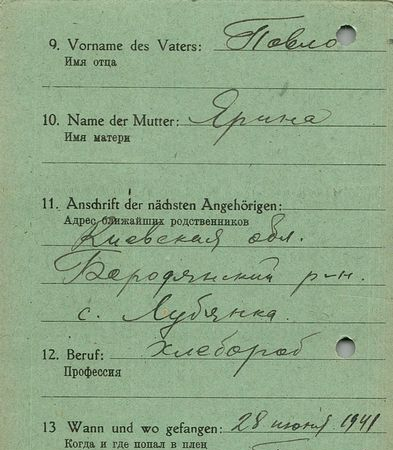 9. Vorname des Vaters: Повло
Имя отца
10. Name der Mutter: Ярина
Имя матери
11. Anschrift der nächsten Angehörigen:
Адрес ближайших родственников
Киевская обл.
Бородянский р-н.
с. Лубянка.
12. Beruf: хлебороб
Профессия
13 Wann und wo gefangen: 28 июня 1941
Когда и где попал в плец